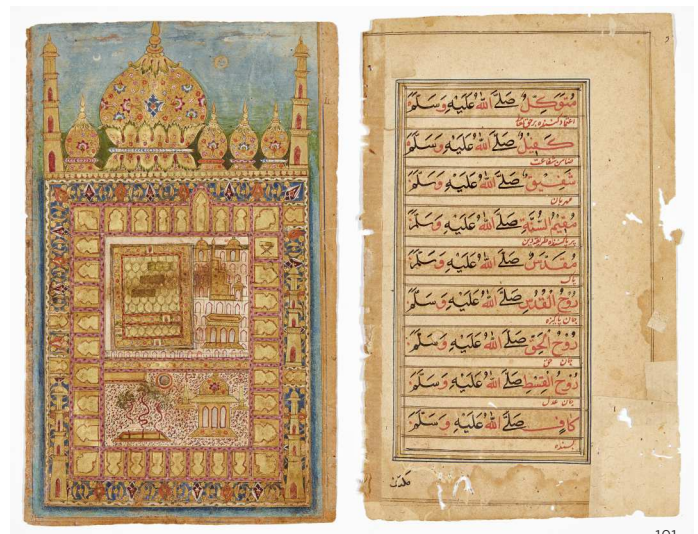 مُتَوَكِّلٌ صَلَّى اللهُ عَلَيْهِ وَسَلَّمَ
كَفِيلٌ صَلَّى اللهُ عَلَيْهِ وَسَلَّمَ
ضامن شفاعت
شَفِيقٌ صَلَّى اللهُ عَلَيْهِ وَسَلَّمَ
مهربان
مُقِيمُ السُّنَّةِ صَلَّى اللهُ عَلَيْهِ وَسَلَّمَ
مُقَدَّسٌ صَلَّى اللهُ عَلَيْهِ وَسَلَّمَ
پاک
رُوحُ الْقُدُسِ صَلَّى اللهُ عَلَيْهِ وَسَلَّمَ
جان پاکیزه
رُوحُ الْحَقِّ صَلَّى اللهُ عَلَيْهِ وَسَلَّمَ
جان حق
رُوحُ الْقِسْطِ صَلَّى اللهُ عَلَيْهِ وَسَلَّمَ
جان عدل
كَافٍ صَلَّى اللهُ عَلَيْهِ وَسَلَّمَ
بسنده